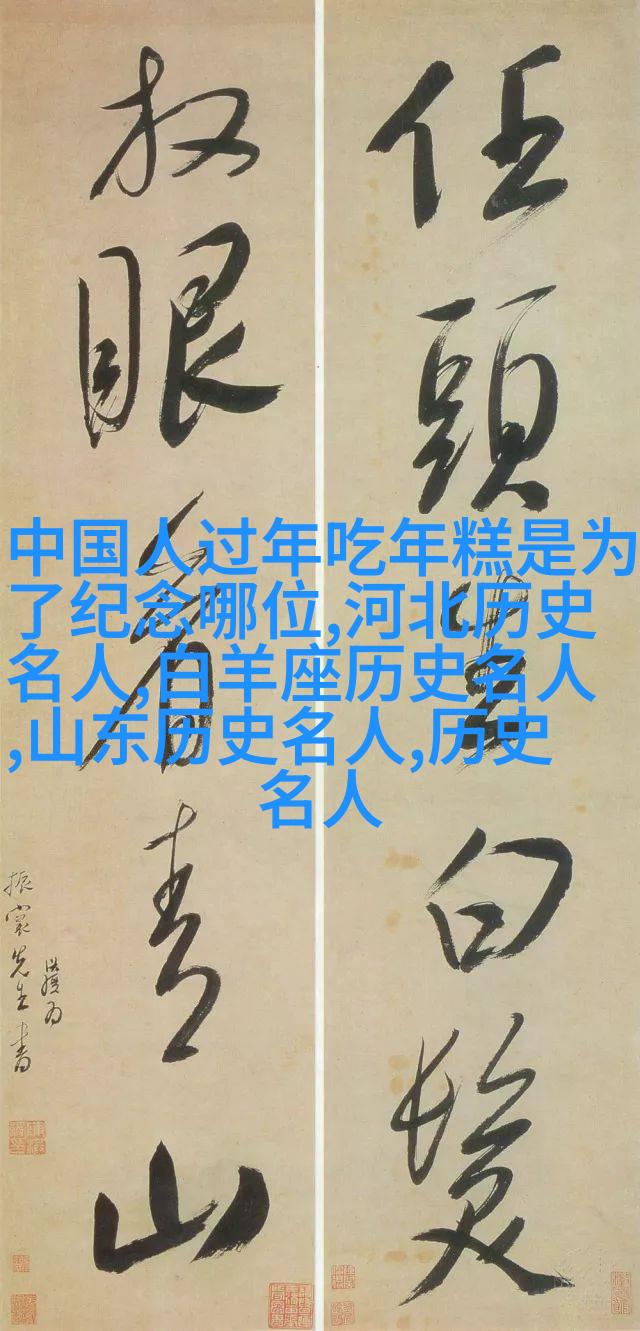 任頭生白髮
放眼看青山
振裳先生書
中国人过年吃年糕是为
了纪念哪位,河北历史
名人,白羊座历史名人
,山东历史名人,历史
名人